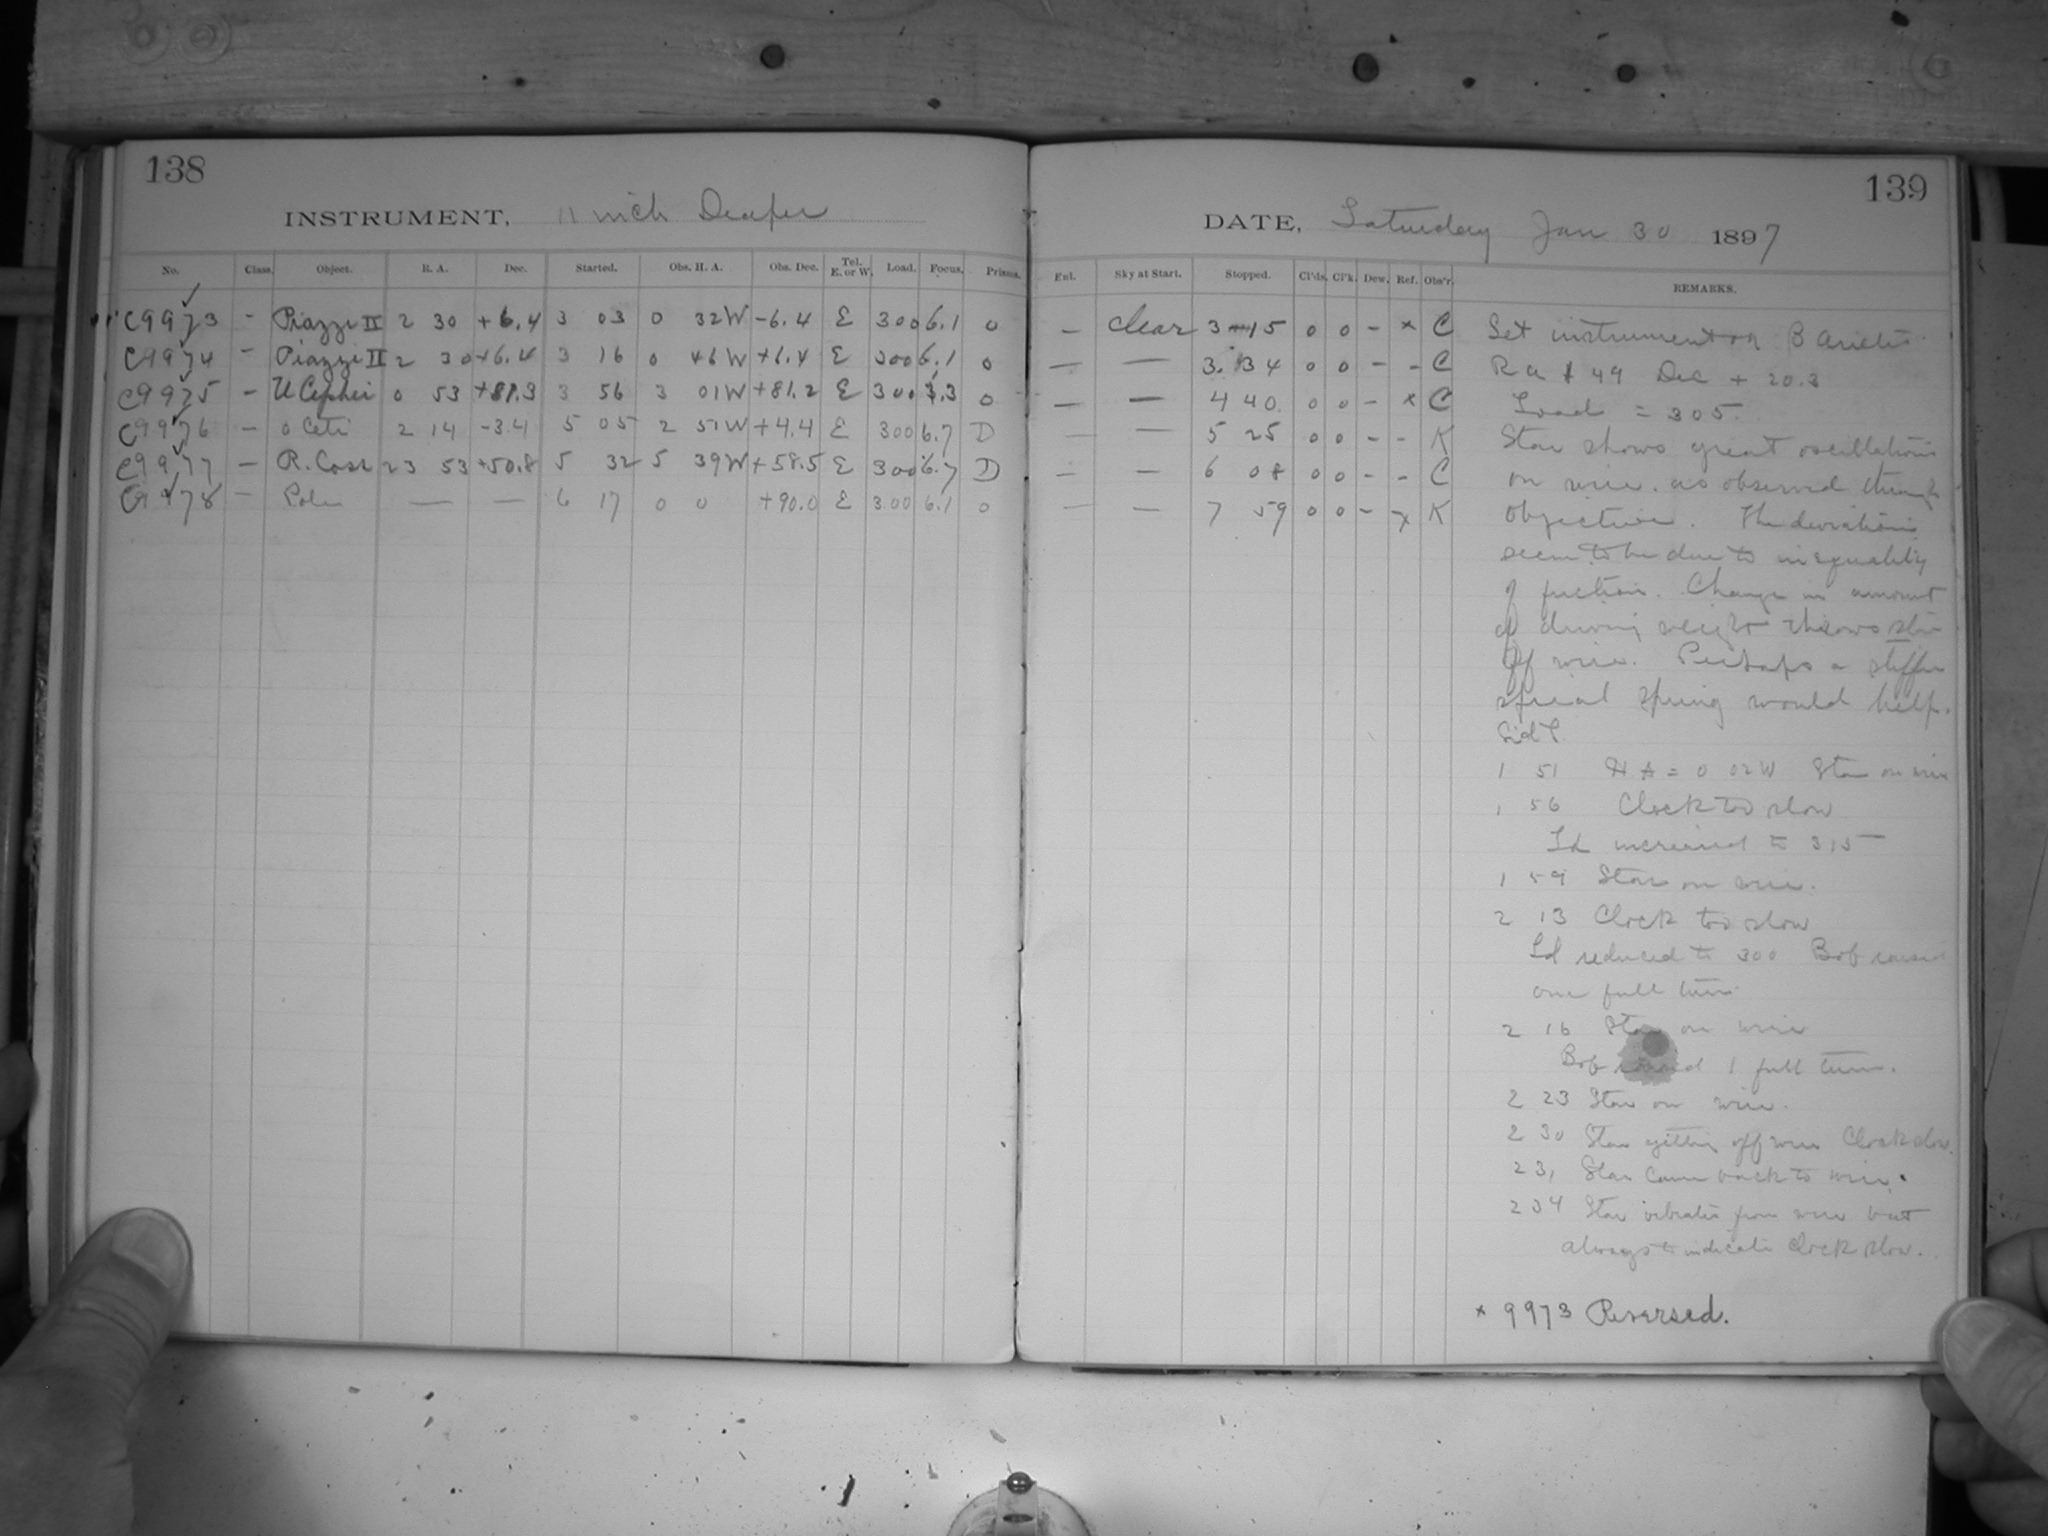 138
INSTRUMENT, 11 inch Draper
No. Class. Object. R. A. Dec. Started. Obs. H. A. Obs. Dec. Tel. E. or W. Load. Focus. Prisms.
C9973 - Piazzi II 2 30 +6.4 3 03 0 32W -6.4 E 300 6.1 0
C9974 - Piazzi II 2 30 +6.4 3 16 0 46W +6.4 E 300 6.1 0
C9975 - U Cephei 0 53 +81.3 3 56 3 01W +81.2 E 300 0
C9976 - o Ceti 2 14 -3.4 5 05 2 51W +4.4 E 300 6.7 D
C9977 - R. Cass 23 53 +50.8 5 32 5 39W +58.5 E 300 6.7 D
C9978 - Pole — — 6 17 0 0 +90.0 E 300 6.1 0
139
DATE, Saturday Jan 30 1897
Enl. Sky at Start. Stopped. Cl'ds. Cl'k. Dew. Ref. Obs'r. REMARKS.
— Clear 3 15 0 0 - x C
— — 3. 34 0 0 - - C
— — 4 40 0 0 - x C
— — 5 25 0 0 - - K
— — 6 08 0 0 - - C
— — 7 59 0 0 - x K
Set instrument on B Arietis
Ra 1 49 Dec + 20.3
Load = 305
Star shows great oscillations
on wire. as observed through
objective. The deviations
seem to be due to inequality
of friction. Change in amount
of driving weight throws star
off wire. Perhaps a stiffer
spiral spring would help.
Sid T.
1 51 H A = 0 02W Star on wire
1 56 Clock too slow
Ld increased to 315
1 59 Star on wire.
2 13 Clock too slow
Ld reduced to 300 Bob raised
one full turn
2 16 Star on wire
Bob raised 1 full turn.
2 23 Star on wire.
2 30 Star getting off wire Clock slow.
2 31 Star came back to wire.
2 34 Star vibrates from wire but
always to indicate Clock slow.
x 9973 Reversed.